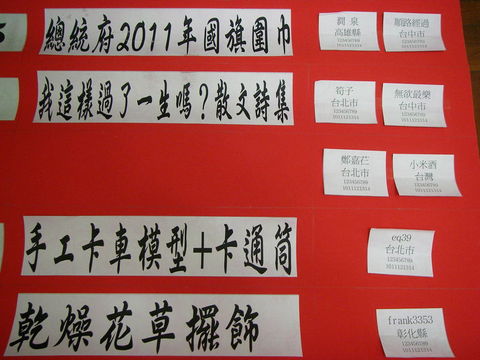 總統府2011年國旗圍巾
潤泉
高雄縣
123456789
1011121314
順路經過
台中市
123456789
1011121314
我這樣過了一生嗎?散文詩集
筍子
台北市
123456789
1011121314
無欲最樂
台中市
123456789
1011121314
鄭嘉仁
台北市
123456789
1011121314
小米酒
台灣
123456789
1011121314
手工卡車模型+卡通筒
eq39
台北市
123456789
1011121314
乾燥花草擺飾
frank3353
彰化縣
123456789
1011121314